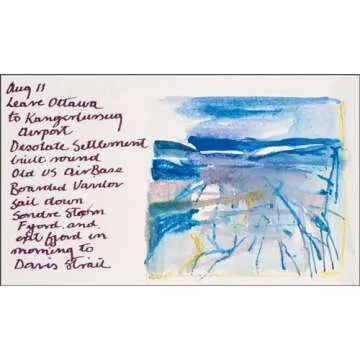 Aug 11
Leave Ottawa
to Kangerlussuq
Airport
Desolate Settlement
built round
Old US AirBase
Boarded Vavilov
Sail down
Sondre Strom
Fyord and
exit fjord in
morning to
Davis Strait